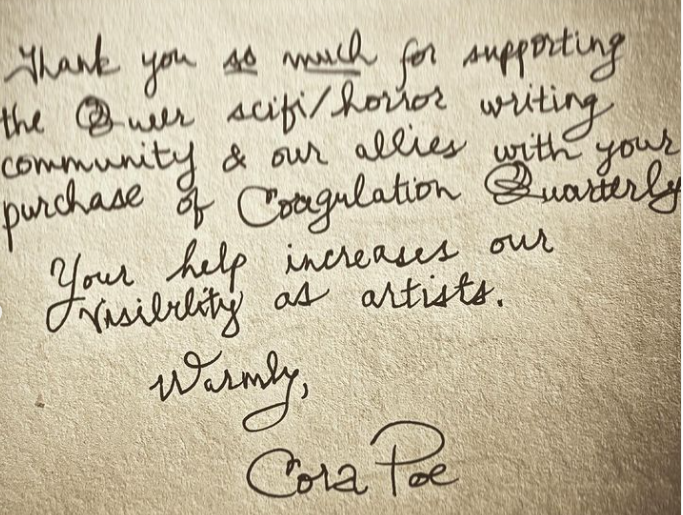 Thank you so much for supporting
the Queer scifi/horror writing
community & our allies with your
purchase of Coagulation Quarterly
Your help increases our
visibility as artists.
Warmly,
Cora Poe